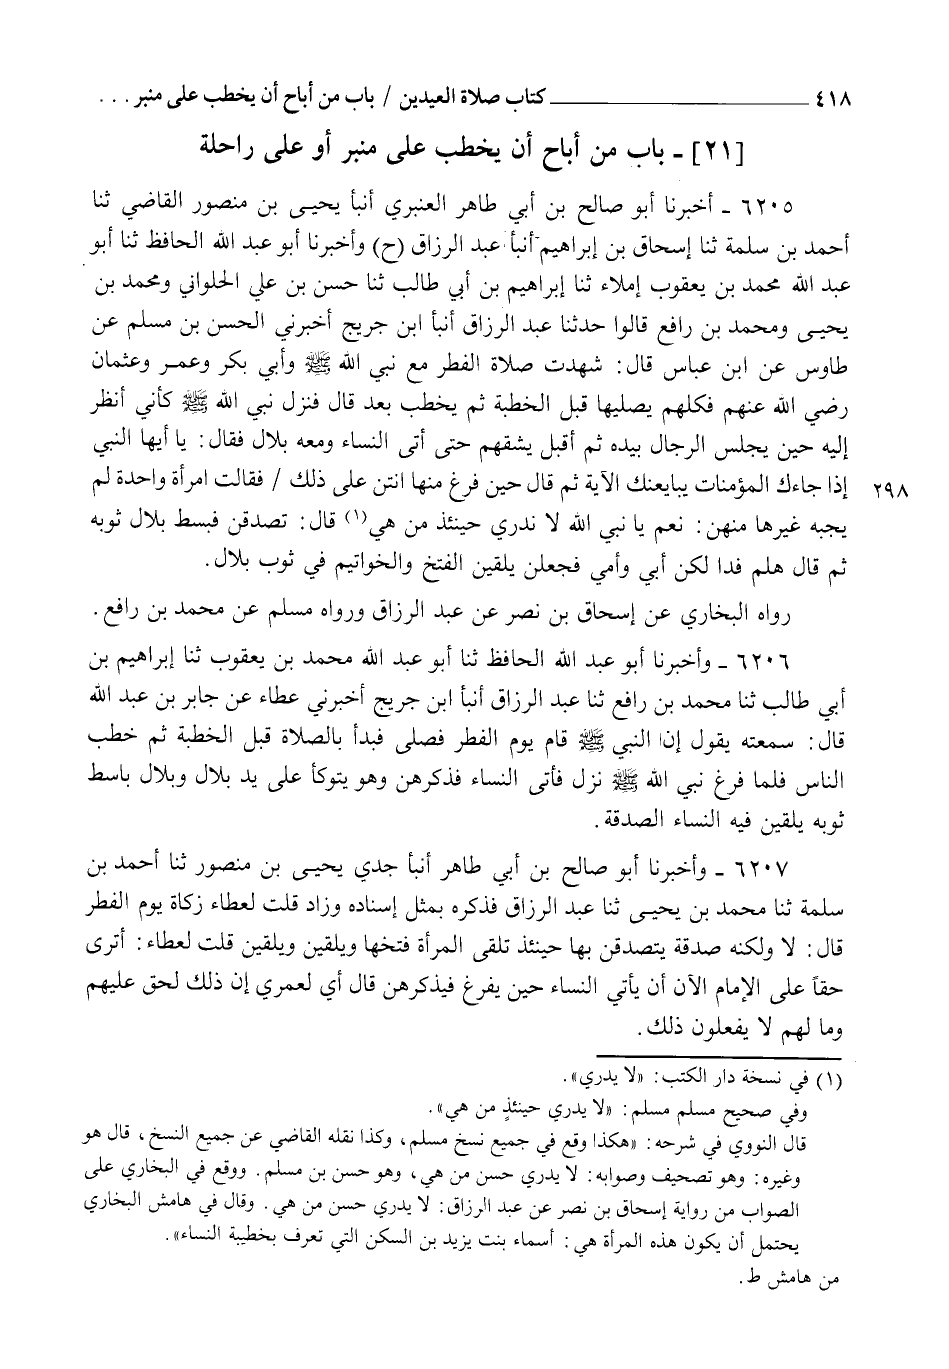 ٤١٨ ـــــــــــــ كتاب صلاة العيدين / باب من أباح أن يخطب على منبر . . .
[٢١] ـ باب من أباح أن يخطب على منبر أو على راحلة
٦٢٠٥ ـ أخبرنا أبو صالح بن أبي طاهر العنبري أنبأ يحيى بن منصور القاضي ثنا
أحمد بن سلمة ثنا إسحاق بن إبراهيم أنبأ عبد الرزاق (ح) وأخبرنا أبو عبد الله الحافظ ثنا أبو
عبد الله محمد بن يعقوب إملاء ثنا إبراهيم بن أبي طالب ثنا حسن بن علي الحلواني ومحمد بن
يحيى ومحمد بن رافع قالوا حدثنا عبد الرزاق أنبأ ابن جريج أخبرني الحسن بن مسلم عن
طاوس عن ابن عباس قال: شهدت صلاة الفطر مع نبي الله ﷺ وأبي بكر وعمر وعثمان
رضي الله عنهم فكلهم يصليها قبل الخطبة ثم يخطب بعد قال فنزل نبي الله ﷺ كأني أنظر
إليه حين يجلس الرجال بيده ثم أقبل يشقهم حتى أتى النساء ومعه بلال فقال: يا أيها النبي
٢٩٨ إذا جاءك المؤمنات يبايعنك الآية ثم قال حين فرغ منها انتن على ذلك / فقالت امرأة واحدة لم
يجبه غيرها منهن: نعم يا نبي الله لا ندري حينئذ من هي(١) قال: تصدقن فبسط بلال ثوبه
ثم قال هلم فدا لكن أبي وأمي فجعلن يلقين الفتخ والخواتيم في ثوب بلال.
رواه البخاري عن إسحاق بن نصر عن عبد الرزاق ورواه مسلم عن محمد بن رافع.
٦٢٠٦ ـ وأخبرنا أبو عبد الله الحافظ ثنا أبو عبد الله محمد بن يعقوب ثنا إبراهيم بن
أبي طالب ثنا محمد بن رافع ثنا عبد الرزاق أنبأ ابن جريج أخبرني عطاء عن جابر بن عبد الله
قال: سمعته يقول إن النبي ﷺ قام يوم الفطر فصلى فبدأ بالصلاة قبل الخطبة ثم خطب
الناس فلما فرغ نبي الله ﷺ نزل فأتى النساء فذكرهن وهو يتوكأ على يد بلال وبلال باسط
ثوبه يلقين فيه النساء الصدقة.
٦٢٠٧ ـ وأخبرنا أبو صالح بن أبي طاهر أنبأ جدي يحيى بن منصور ثنا أحمد بن
سلمة ثنا محمد بن يحيى ثنا عبد الرزاق فذكره بمثل إسناده وزاد قلت لعطاء زكاة يوم الفطر
قال: لا ولكنه صدقة يتصدقن بها حينئذ تلقى المرأة فتخها ويلقين ويلقين قلت لعطاء: أترى
حقاً على الإمام الآن أن يأتي النساء حين يفرغ فيذكرهن قال أي لعمري إن ذلك لحق عليهم
وما لهم لا يفعلون ذلك.
(١) في نسخة دار الكتب: «لا يدري».
وفي صحيح مسلم مسلم: «لا يدري حينئذٍ من هي».
قال النووي في شرحه: «هكذا وقع في جميع نسخ مسلم، وكذا نقله القاضي عن جميع النسخ، قال هو
وغيره: وهو تصحيف وصوابه: لا يدري حسن من هي، وهو حسن بن مسلم. ووقع في البخاري على
الصواب من رواية إسحاق بن نصر عن عبد الرزاق: لا يدري حسن من هي. وقال في هامش البخاري
يحتمل أن يكون هذه المرأة هي: أسماء بنت يزيد بن السكن التي تعرف بخطيبة النساء».
من هامش ط.